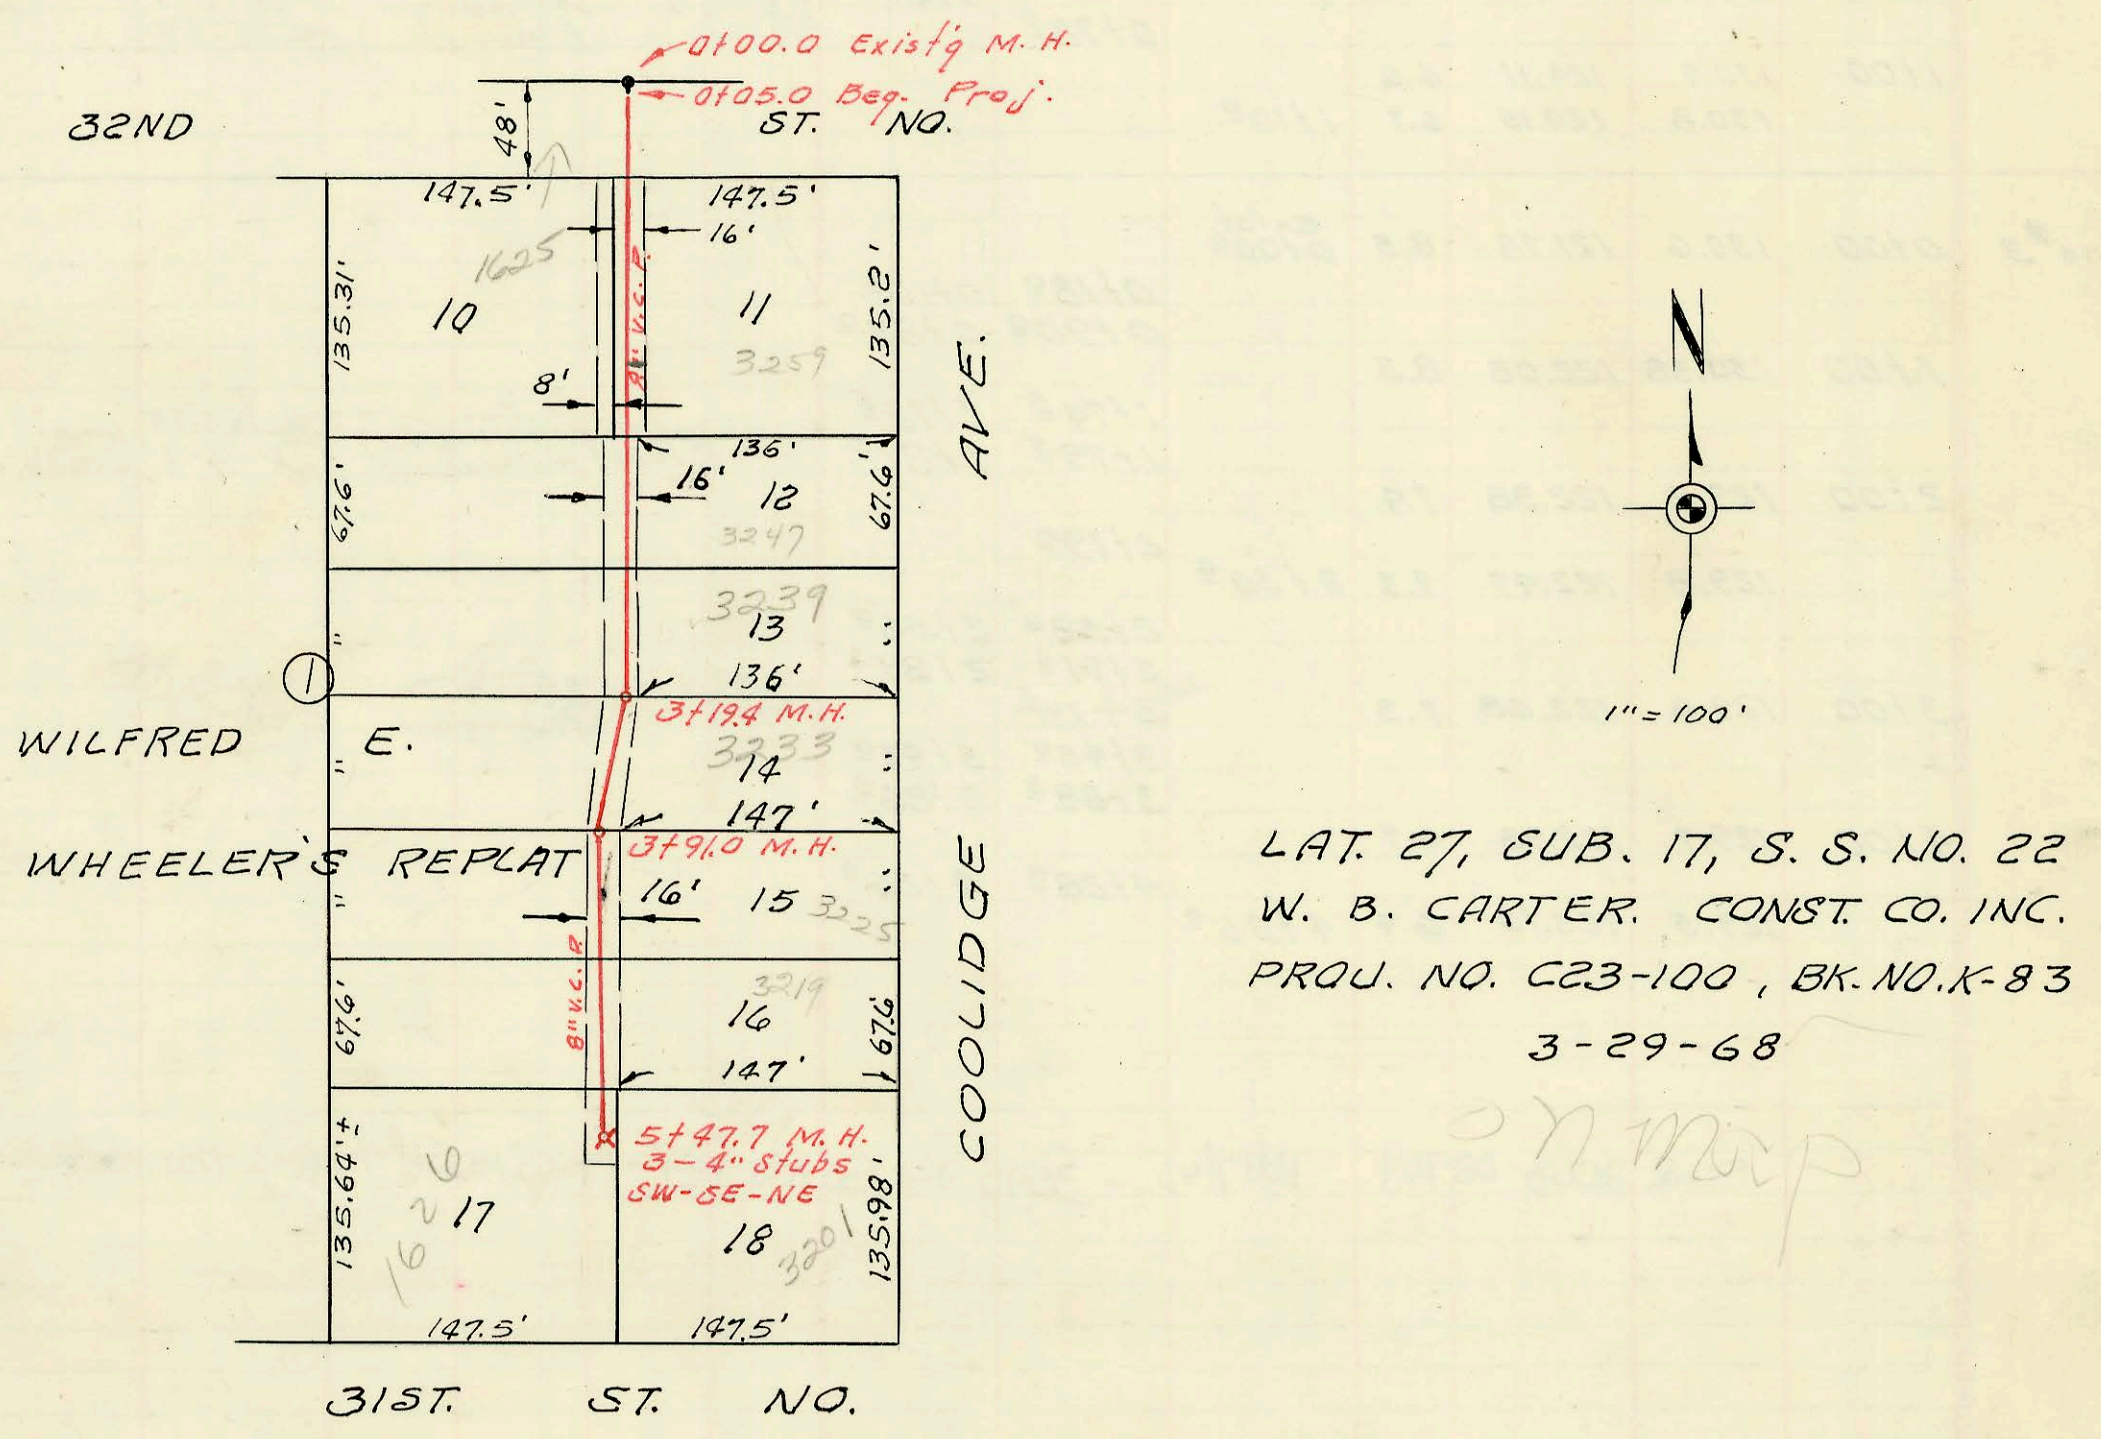 0+00.0 Exist'g M. H.
0+05.0 Beg. Proj.
32ND ST. NO.
48'
147.5' 147.5'
16'
1625
135.31' 10 8" V.C.P. 11 135.2'
3259
8'
136'
16' 12
67.6' 67.6'
3247
3239
" 13 "
136'
1
3+19.4 M.H.
WILFRED E.
3233
" 14 "
147'
3+91.0 M.H.
WHEELER'S REPLAT
" 16' 15 "
3225
8" V.C.P.
3219
67.6' 16 67.6'
147'
5+47.7 M.H.
3-4" Stubs
SW-SE-NE
135.64'± 17 18 135.98'
1626 3201
147.5' 147.5'
31ST. ST. NO.
COOLIDGE AVE.
N
1"=100'
LAT. 27, SUB. 17, S. S. NO. 22
W. B. CARTER. CONST. CO. INC.
PROJ. NO. C23-100, BK. NO. K-83
3-29-68
on map